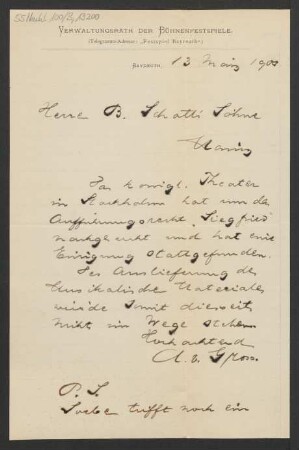 VERWALTUNGSRATH DER BÜHNENFESTSPIELE.
(Telegramm-Adresse: „Festspiel Bayreuth“.)
BAYREUTH, 13 März 1900
Herrn B. Schotts Söhne
Mainz
Das königl. Theater
in Stockholm hat um das
Aufführungsrecht Siegfried
nachgesucht und hat eine
Einigung stattgefunden.
Der Auslieferung des
Musikalische Materiales
würde somit dieseits
nichts im Wege stehen
Hochachtend
A. v. Gross
P. S.
Soeben trifft noch ein